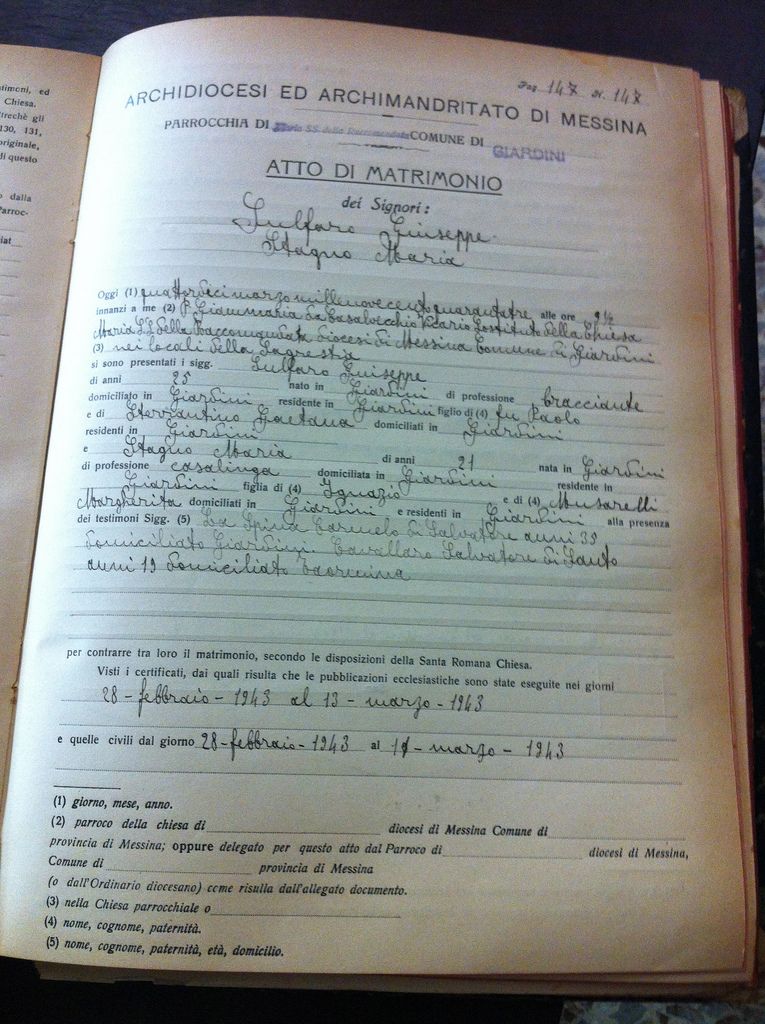 timoni, ed
Chiesa.
trechè gli
130, 131,
originale,
di questo
dalla
Parroc-
iat
Pag. 147 N. 147
ARCHIDIOCESI ED ARCHIMANDRITATO DI MESSINA
PARROCCHIA DI Maria SS. della Raccomandata COMUNE DI GIARDINI
ATTO DI MATRIMONIO
dei Signori:
Sulfaro Giuseppe
Stagno Maria
Oggi (1) quattordici marzo millenovecentoquarantatre alle ore 9½
innanzi a me (2) P. Gianmaria da Casalvecchio Vicario Sostituto della Chiesa
Maria SS della Raccomandata Diocesi di Messina Comune di Giardini
(3) nei locali della Sagrestia
si sono presentati i sigg. Sulfaro Giuseppe
di anni 25 nato in Giardini di professione bracciante
domiciliato in Giardini residente in Giardini figlio di (4) fu Paolo
e di Sterrantino Gaetana domiciliati in Giardini
residenti in Giardini
e Stagno Maria di anni 21 nata in Giardini
di professione casalinga domiciliata in Giardini residente in
Giardini figlia di (4) Ignazio e di (4) Musarelli
Margherita domiciliati in Giardini e residenti in Giardini alla presenza
dei testimoni Sigg. (5) La Spina Carmelo di Salvatore anni 39
domiciliato Giardini. Cavallaro Salvatore di Santo
anni 19 domiciliato Taormina
per contrarre tra loro il matrimonio, secondo le disposizioni della Santa Romana Chiesa.
Visti i certificati, dai quali risulta che le pubblicazioni ecclesiastiche sono state eseguite nei giorni
28 - febbraio - 1943 al 13 - marzo - 1943
e quelle civili dal giorno 28 - febbraio - 1943 al - marzo - 1943
(1) giorno, mese, anno.
(2) parroco della chiesa di diocesi di Messina Comune di
provincia di Messina; oppure delegato per questo atto dal Parroco di diocesi di Messina,
Comune di provincia di Messina
(o dall'Ordinario diocesano) come risulta dall'allegato documento.
(3) nella Chiesa parrocchiale o
(4) nome, cognome, paternità.
(5) nome, cognome, paternità, età, domicilio.